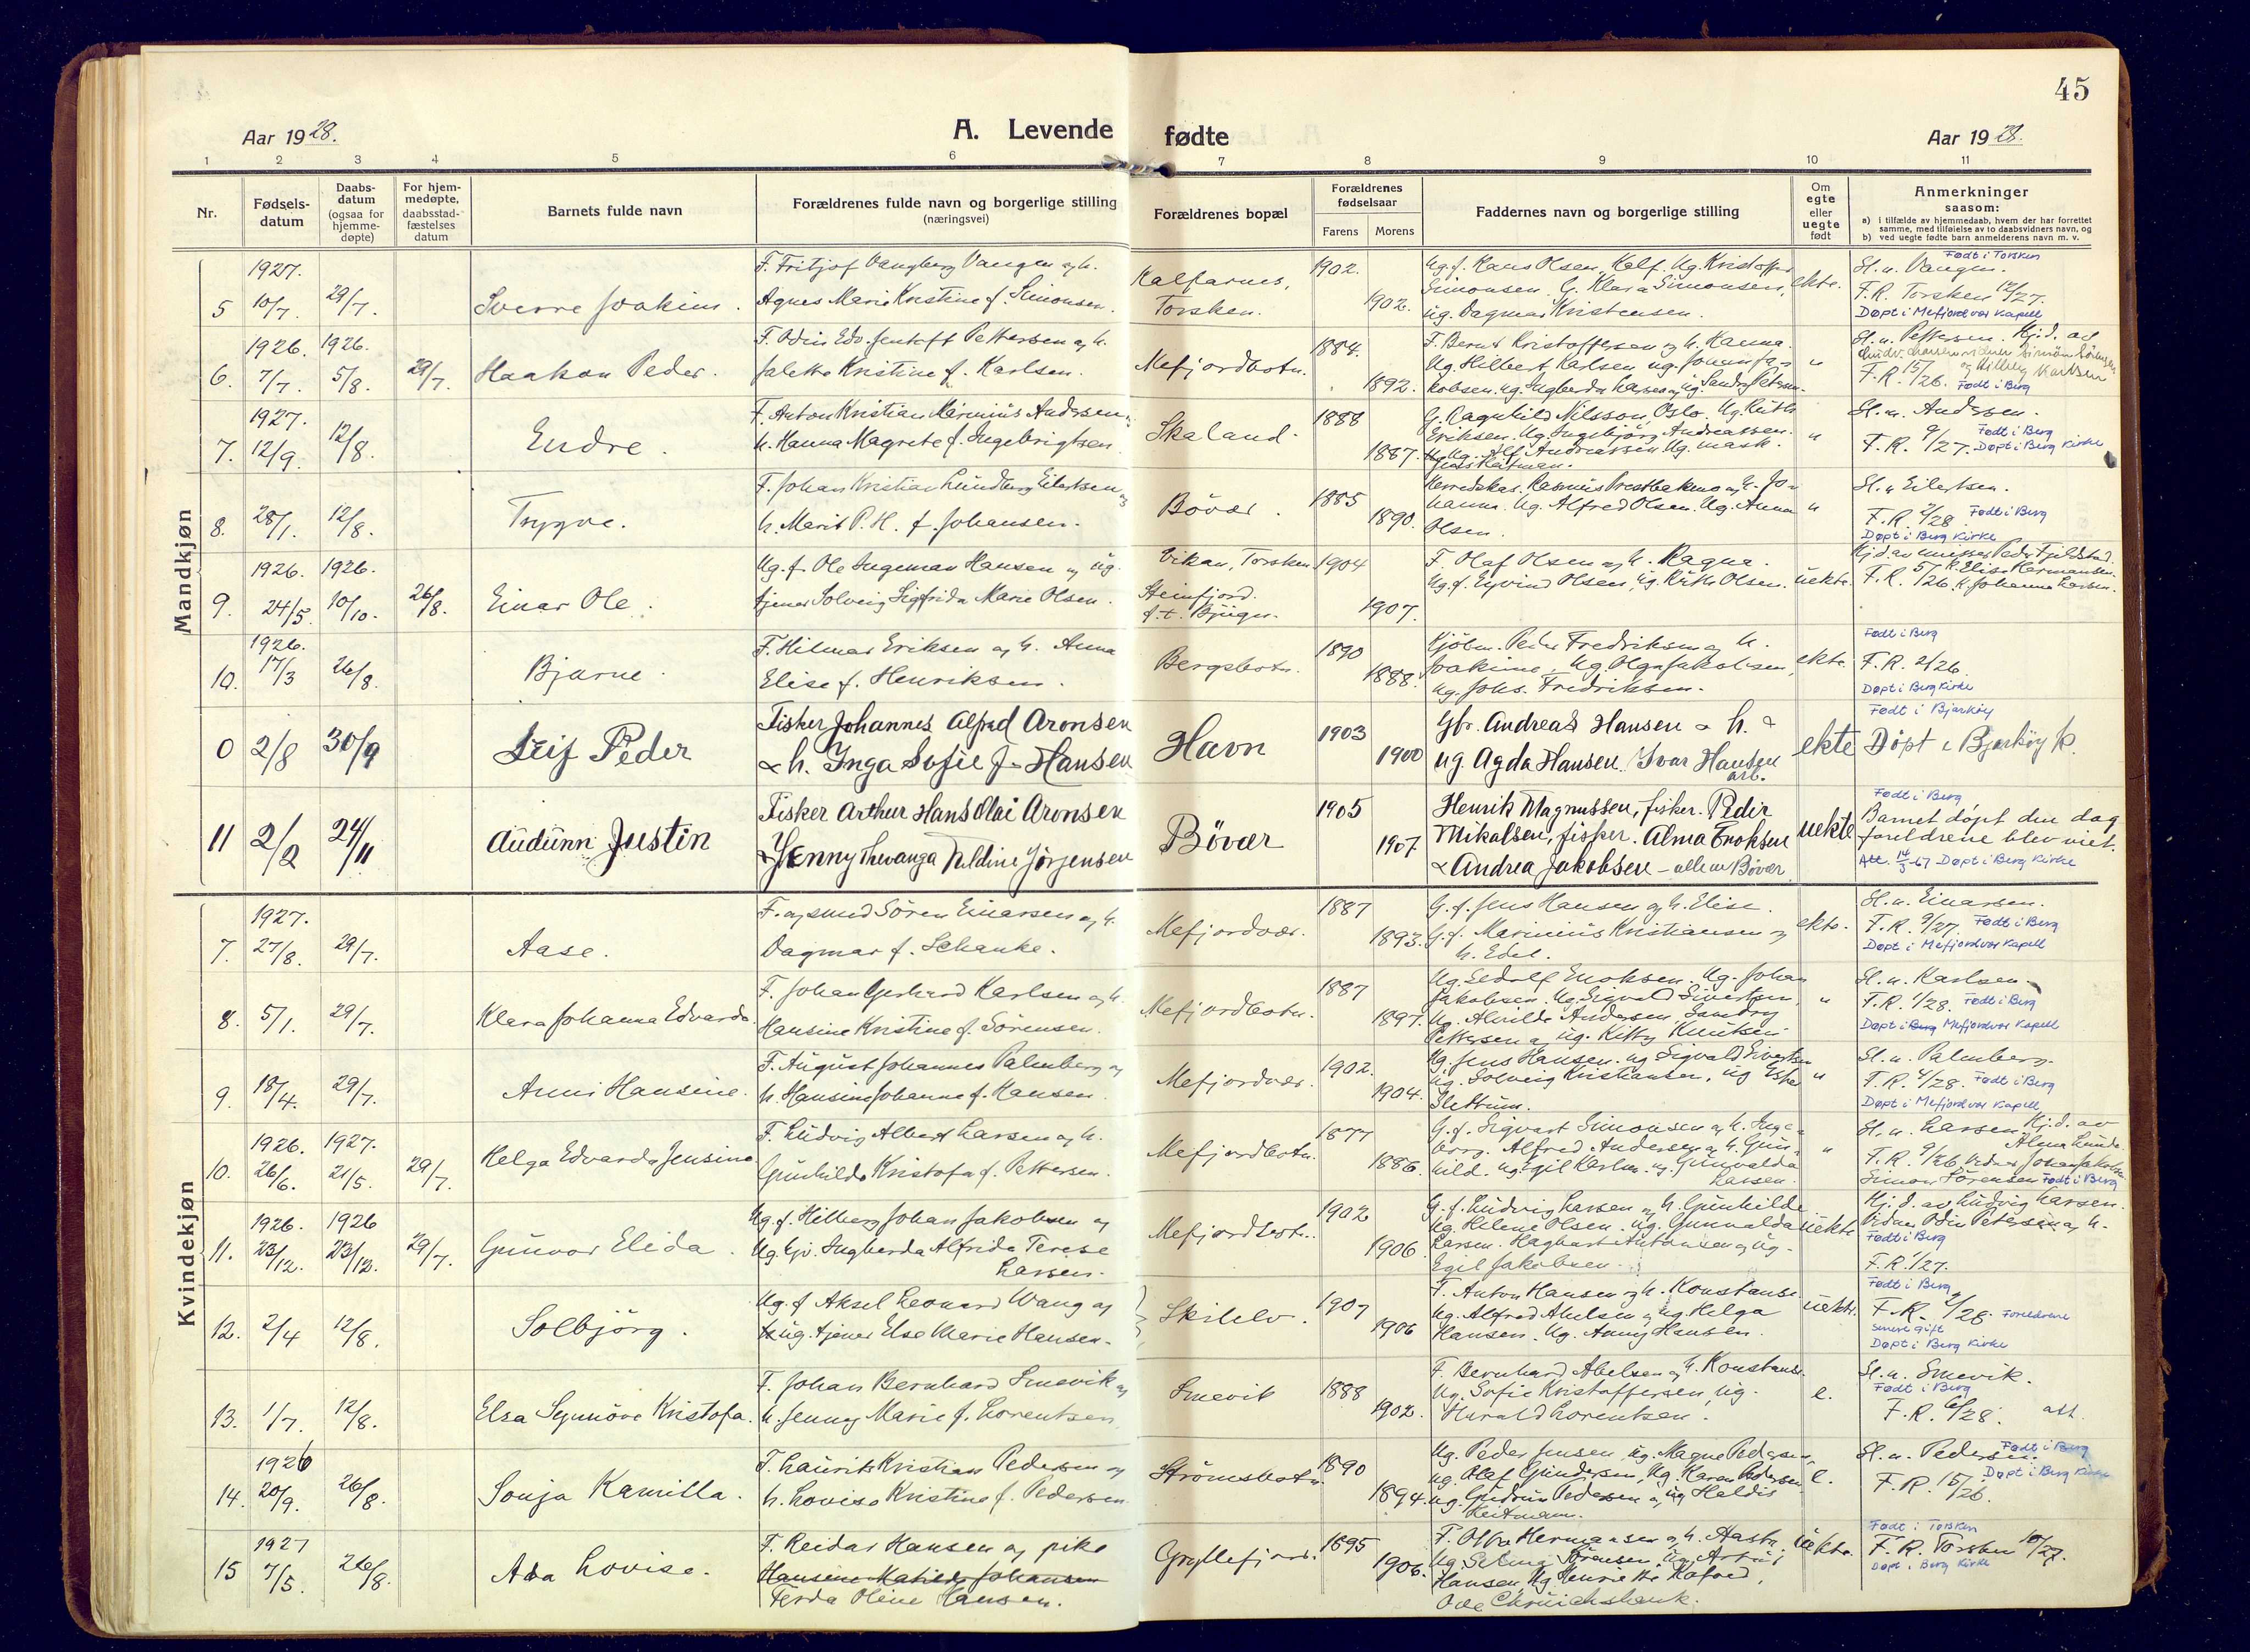 45
Aar 1928.
A. Levende fødte
Aar 1928.
1 2 3 4 5 6 7 8 9 10 11
Nr.
Fødsels-
datum
Daabs-
datum
(ogsaa for
hjemme-
døpte)
For hjem-
medøpte,
daabsstad-
fæstelses
datum
Barnets fulde navn
Forældrenes fulde navn og borgerlige stilling
(næringsvei)
Forældrenes bopæl
Forældrenes
fødselsaar
Farens Morens
Faddernes navn og borgerlige stilling
Om
egte
eller
uegte
født
Anmerkninger
saasom:
a) i tilfælde av hjemmedaab, hvem der har forrettet
samme, med tilføielse av to daabsvidners navn, og
b) ved uegte fødte barn anmelderens navn m. v.
Mandkjøn
1927.
5 10/7. 29/7. Sverre Joakim.
F. Fritjof Vangberg Vangen og h.
Agnes Marie Kristine f. Simonsen.
Kalfarnes,
Torsken.
1902.
1902.
Ug. f. Hans Olsen, Kalf. Ug. Kristoffer
Simonsen. G. Klara Simonsen,
ug. Dagmar Kristensen.
ekte.
Født i Torsken
Sl. n. Vangen.
F.R. Torsken 12/27.
Døpt i Mefjordvær Kapell
1926. 1926.
6. 7/7. 5/8. 29/7. Haakon Peder.
F. Odin Edv. Jentoft Pettersen og h.
Jalette Kristine f. Karlsen.
Mefjordbotn.
1884.
1892.
F. Bernt Kristoffersen og h. Hanna.
Ug. Hilbert Karlsen ug. Johan Ja-
kobsen. ug. Ingberda Larsen og ug. Sandry Peters-
"
Sl. n. Pettersen. Hj.d. av
F.R. 15/26. Født i Berg
1927.
7. 12/9. 12/8. Endre.
F. Anton Kristian Marinius Andersen og
h. Hanna Magrete f. Ingebrigtsen.
Skaland.
1888
1887.
G. Ragnhild Nilsson, Oslo. Ug. Ruth
Eriksen. Ug. Ingebjørg Andreassen.
Ug. Alf Andreassen Ug. mask.
"
Sl. n. Andersen.
Født i Berg
F.R. 9/27. Døpt i Berg Kirke
8. 28/1. 12/8. Trygve.
F. Johan Kristian Lundberg Eilertsen og
h. Marit P. H. f. Johansen.
Bövær.
1885
1890.
Herredskas. Rasmus Prestbakmo og h. Jo-
hanna. Ug. Alfred Olsen. Ug. Anna
Olsen.
"
Sl. n. Eilertsen.
F.R. 2/28. Født i Berg
Døpt i Berg Kirke
1926. 1926.
9. 24/5. 10/10. 26/8. Einar Ole.
Ug. f. Ole Ingeman Hansen og ug.
tjener Solveig Sigfrida Marie Olsen.
Vikan, Torsken
Steinfjord.
f.t. Bjugn.
1904
1907.
F. Olaf Olsen og h. Ragna.
Ug. f. Eyvind Olsen, Ug. Ruth Olsen.
uekte.
Peder Fjeldstad.
F.R. 5/26. h. Johanna Larsen.
1926.
10. 17/3 26/8. Bjarne.
F. Hilmar Eriksen og h. Anna
Elise f. Henriksen.
Bergsbotn.
1890
1888.
Kjøbm. Peder Fredriksen og h.
Joakime, Ug. Olga Jakobsen,
Ug. Johs. Fredriksen.
ekte.
Født i Berg
F.R. 2/26.
Døpt i Berg Kirke
0 2/8 30/9 Leif Peder
Fisker Johannes Alfred Aronsen
& h. Inga Sofie f. Hansen
Havn
1903
1900
Gbr. Andreas Hansen & h. &
ug Agda Hansen. Ivar Hansen
arb.
ekte
Født i Bjarkøy
Døpt i Bjarkøy k.
11 2/2 24/11 Audunn Justin
Fisker Arthur Hans Olai Aronsen
& Jenny Thevanga Juldine Jørgensen
Bövær
1905
1907.
Henrik Magnussen, fisker. Peder
Mikalsen, fisker. Alma Enoksen
& Andrea Jakobsen – alle av Bövær
uekte
Født i Berg
Barnet døpt den dag
foreldrene blev viet.
Att. 14/3-67 Døpt i Berg Kirke
Kvindekjøn
1927.
7. 27/8. 29/7. Aase.
F. og smed Sören Einarsen og h.
Dagmar f. Schanke.
Mefjordvær.
1887
1893.
G. f. Jens Hansen og h. Elise.
G. f. Marinius Kristiansen og
h. Edel.
ekte.
Sl. n. Einarsen.
F.R. 9/27. Født i Berg
Døpt i Mefjordvær Kapell
8. 5/1. 29/7. Klara Johanna Edvarda
F. Johan Gerhard Karlsen og h.
Hansine Kristine f. Sörensen.
Mefjordbotn.
1887
1897.
Ug. Sedolf Enoksen. Ug. Johan
Jakobsen. Ug. Sigvald Sivertsen,
Ug. Alvilde Andersen, Sandry
Pettersen og ug. Kitty Knutsen.
"
Sl. n. Karlsen.
F.R. 1/28. Født i Berg
Døpt i Berg Mefjordvær Kapell
9. 18/4. 29/7. Anni Hansine.
F. August Johannes Palmberg og
h. Hansine Johanne f. Hansen.
Mefjordvær.
1902.
1904.
Ug. Jens Hansen. ug Sigvald Sivertsen
Ug. Solveig Kristiansen, ug Esper
Slettum.
"
Sl. n. Palmberg.
F.R. 4/28. Født i Berg
Døpt i Mefjordvær Kapell
1926. 1927.
10. 26/6. 21/5. 29/7. Helga Edvarda Jensine
F. Ludvig Albert Larsen og h.
Gunhilde Kristofa f. Pettersen.
Mefjordbotn.
1877
1886.
G. f. Sigvart Simonsen og h. Inge-
borg. Alfred Andersen og h. Gun-
hild. ug Egil Karlsen. ug. Gunvalda
Larsen.
"
Sl. n. Larsen. Hj.d. av
Alma Lunde
F.R. 9/26. Vidner Johan Jakobsen
Simon Sörensen Født i Berg
1926. 1926
11. 23/12. 23/12. 29/7. Gunvor Elida.
Ug. f. Hilberg Johan Jakobsen og
Ug. Gjv. Ingberda Alfrida Terese
Larsen.
Mefjordbotn.
1902
1906.
G. f. Ludvig Larsen og h. Gunhilde.
Ug. Helene Olsen. ug. Gunvalda
Larsen. Hagbart Antonsen og ug.
Egil Jakobsen.
uekte
Hj.d. av Ludvig Larsen.
Vidner Odin Petersen og h.
Født i Berg
F.R. 1/27.
12. 2/4 12/8. Solbjörg.
Ug. f Aksel Leonard Wang og
ug. tjener Else Marie Hansen.
Skilelv.
1907
1906
F. Anton Hansen og h. Konstanse
Ug. Alfred Abelsen og ug. Helga
Hansen. Ug. Anny Hansen.
uekte.
Født i Berg
F.R. 4/28. Foreldrene
senere gift
Døpt i Berg Kirke
13. 1/7. 12/8. Elsa Synnöve Kristofa.
F. Johan Bernhard Smevik og
h. Jenny Marie f. Lorentsen
Smevik
1888
1902.
F. Bernhard Abelsen og h. Konstanse.
Ug. Sofie Kristoffersen, ug.
Harald Lorentsen.
e.
Sl. n. Smevik.
Født i Berg
F.R. 6/28. att.
1926
14. 20/9. 26/8. Sonja Kamilla.
F. Laurits Kristian Pedersen og
h. Lovise Kristine f. Pedersen
Strömsbotn.
1890
1894.
Ug. Peder Jensen, ug. Magne Pedersen,
ug. Olaf Gundersen, Ug. Karen Pedersen.
ug. Gudrun Pedersen og ug Haldis
Heitmann.
e.
Sl. n. Pedersen. Født i Berg
Døpt i Berg Kirke
F.R. 15/26.
1927
15 7/5. 26/8. Ada Lovise.
F. Reidar Hansen og pike
Hansine Matilde Johansen
Ferda Oline Hansen.
Gryllefjord.
1895
1906.
F. Olfer Hermansen og h. Aasta.
Ug. Selma Sörensen, Ug. Artur
Hansen, Ug. Henriette Hofred,
uekte.
Født i Torsken
F.R. Torsken 10/27.
Døpt i Berg Kirke